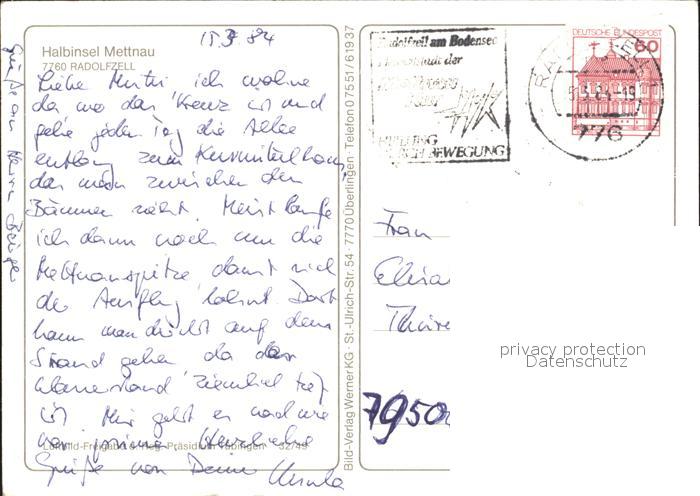 15.3.84
Halbinsel Mettnau
7760 RADOLFZELL
Liebe Mutti ich wohne
da wo das Kreuz ist und
gehe jeden Tag die Allee
entlang zum Kurmittelhaus,
das man zwischen den
Bäumen sieht. Meist laufe
ich dann noch um die
Mettnauspitze damit sich
der Ausflug lohnt. Dort
kann man direkt auf dem
Strand gehen da der
Wasserstand ziemlich tief
ist. Mir geht es nach wie
vor prima. Herzliche
Grüße von Deiner Ursula
Luftbild-Freigabe d. Reg.-Präsidium Tübingen 32/49
Bild-Verlag Werner KG · St.-Ulrich-Str. 54 · 7770 Überlingen · Telefon 07551/61937
Radolfzell am Bodensee
HEILUNG
DURCH BEWEGUNG
DEUTSCHE BUNDESPOST
60
776
Frau
7950
privacy protection
Datenschutz